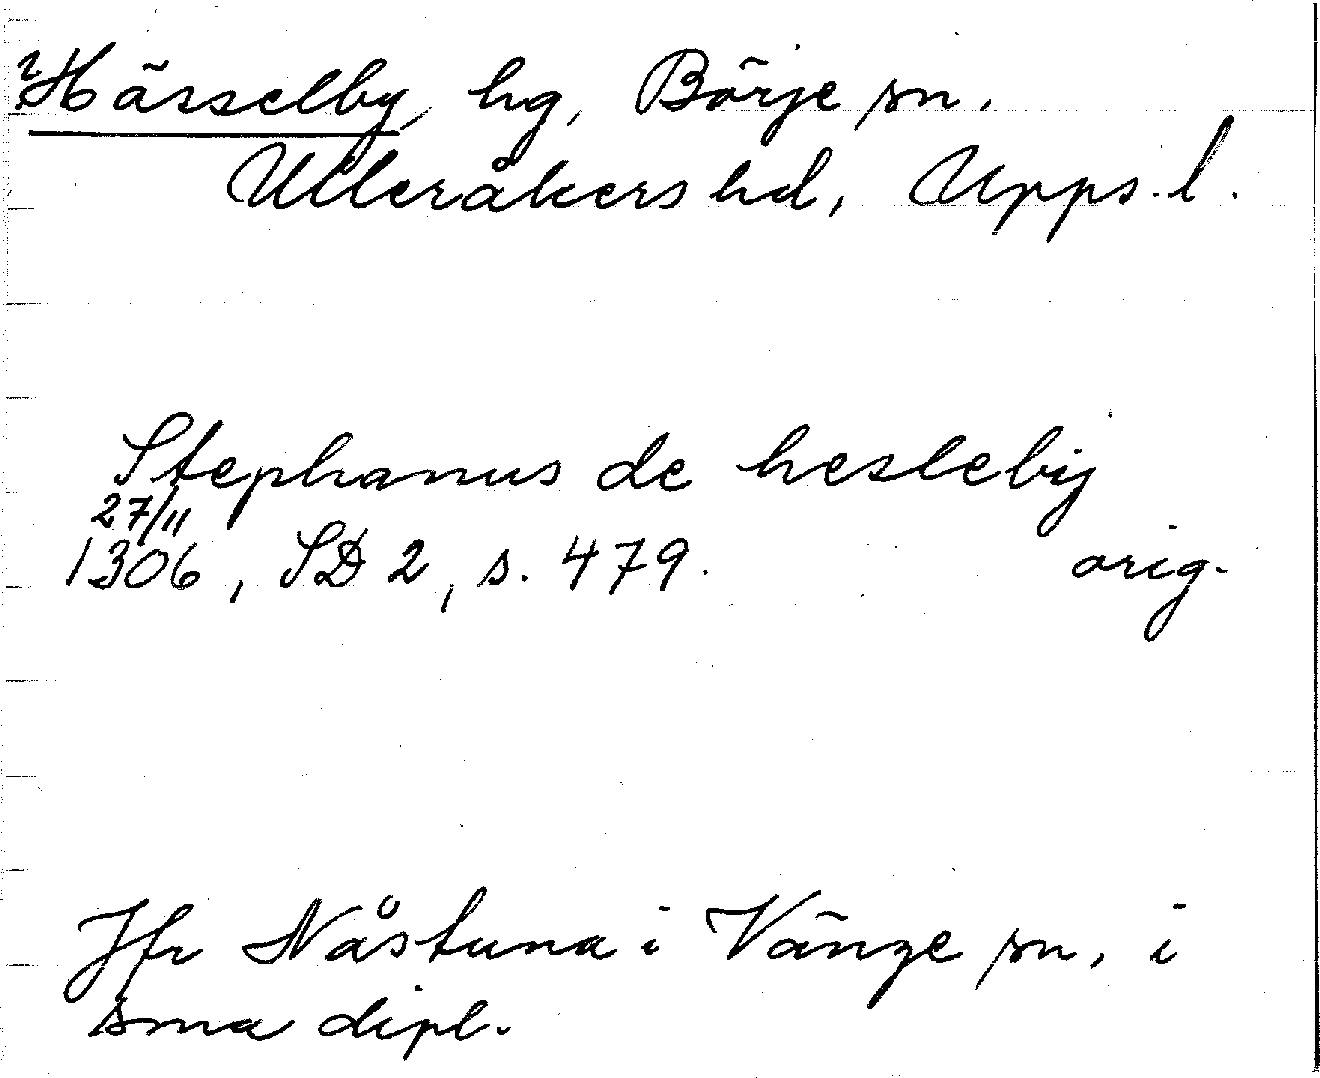 ?Hässelby, hg, Börje sn.
Ulleråkers hd, Upps. l.
Stephanus de heslebij
27/11
1306, SD 2, s. 479. orig.
Jfr Nåstuna i Vänge sn, i
sma dipl.